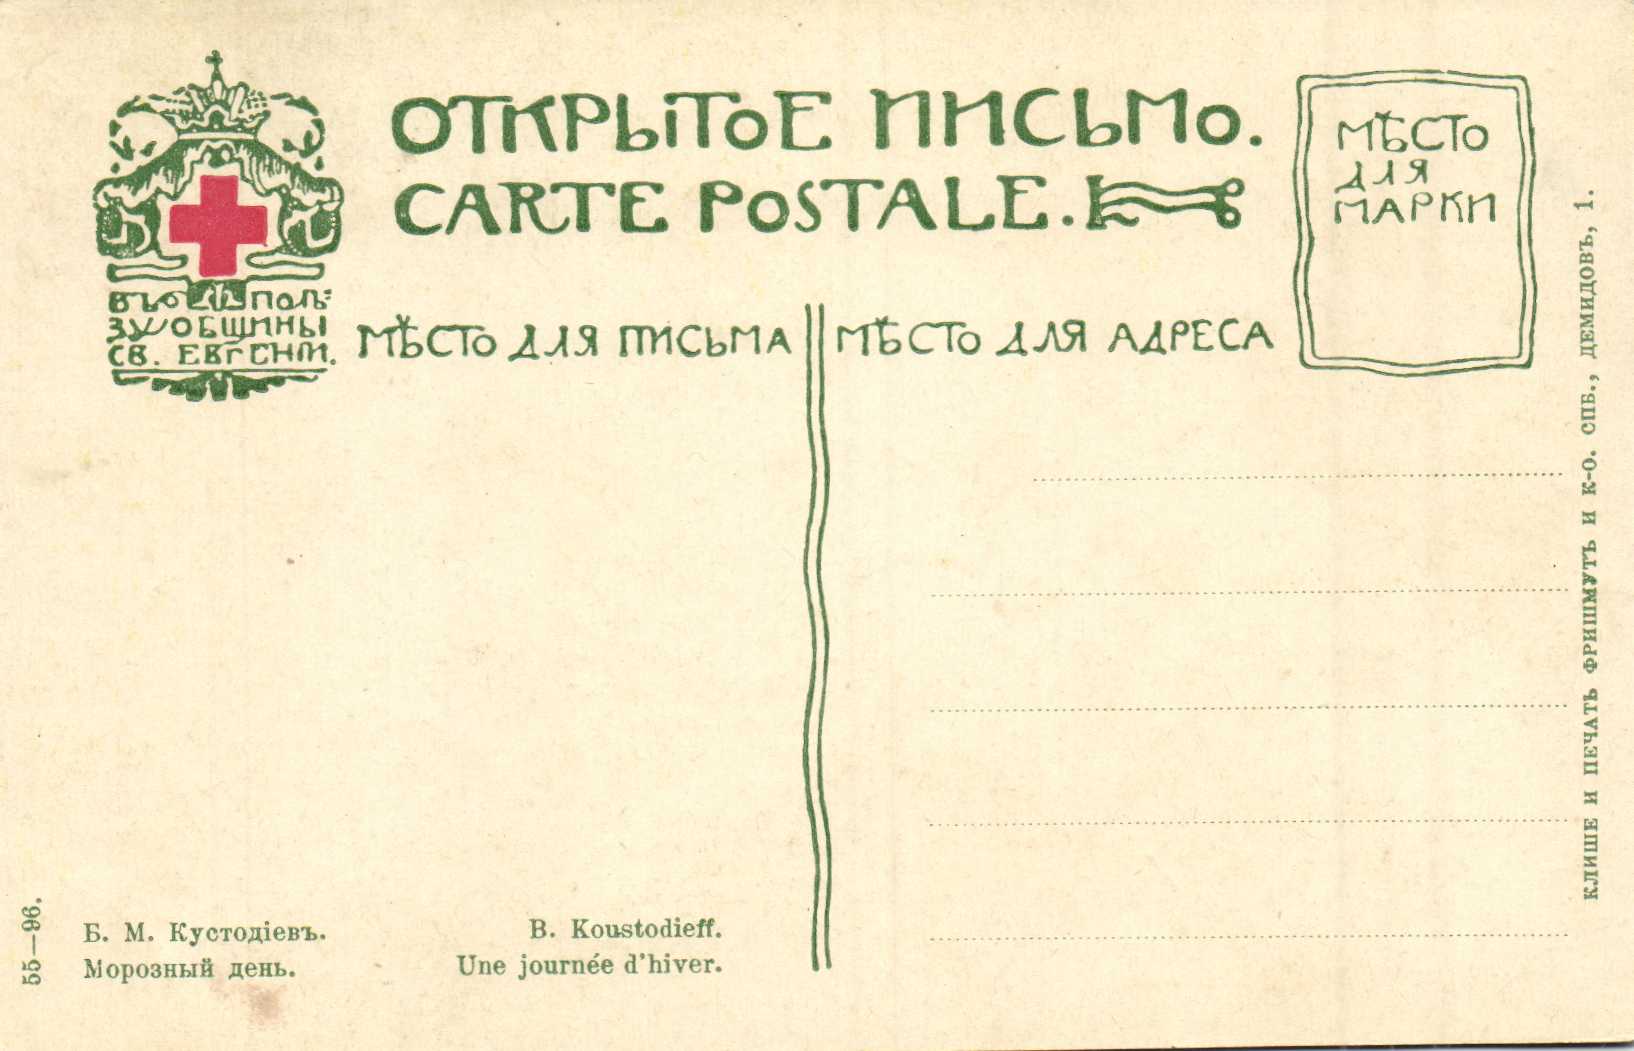 ОТКРЫТОЕ ПИСЬМО.
CARTE POSTALE.
МѢСТО
ДЛЯ
МАРКИ
ВЪ ПОЛЬ=
ЗУ ОБЩИНЫ
СВ. ЕВГЕНІИ.
МѢСТО ДЛЯ ПИСЬМА
МѢСТО ДЛЯ АДРЕСА
КЛИШЕ И ПЕЧАТЬ ФРИШМУТЪ И К-О. СПБ., ДЕМИДОВЪ, 1.
55—96.
Б. М. Кустодіевъ.
Морозный день.
B. Koustodieff.
Une journée d'hiver.